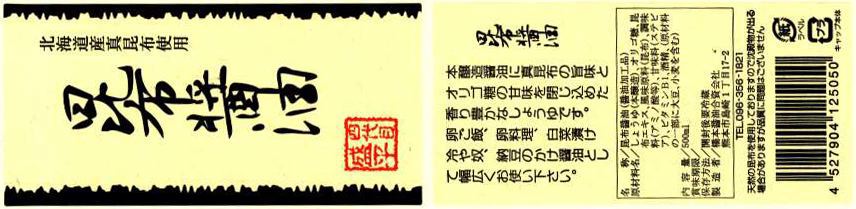 北海道産真昆布使用
昆布醤油
四代目
盛平
昆布醤油
本醸造醤油に真昆布の旨味と
オリゴ糖の甘味を閉じ込めた
香り豊かなしょうゆです。
卵ご飯、卵料理、白菜漬け
冷や奴、納豆のかけ醤油とし
て幅広くお使い下さい。
名称/昆布醤油(醤油加工品)
原材料名/しょうゆ(本醸造)、オリゴ糖、昆
布エキス、風味原料(昆布)、調味
料(アミノ酸等)、甘味料(ステビ
ア)、ビタミンB1、酒精、(原材料
の一部に大豆、小麦を含む)
内容量/500ml
賞味期限
保存方法/開封後要冷蔵
製造者/橋本醤油合資会社
熊本市島崎1丁目17-2
TEL096-356-1821
天然の昆布を使用しておりますので沈殿物が出る
場合がありますが品質に問題はございません
紙
ラベル
プラ
キャップ本体
4 527904 125050